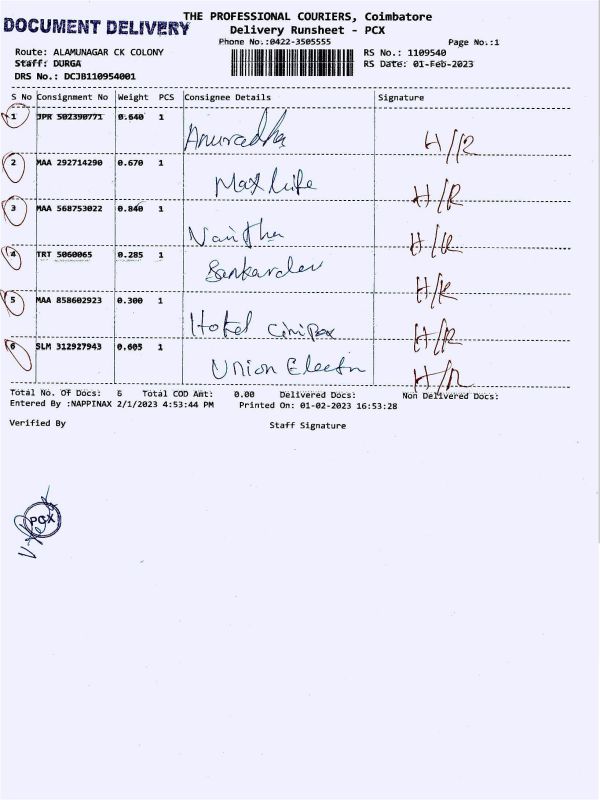 DOCUMENT DELIVERY
THE PROFESSIONAL COURIERS, Coimbatore
Delivery Runsheet - PCX
Phone No.:0422-3505555
Page No.:1
Route: ALAMUNAGAR CK COLONY
RS No.: 1109540
Staff: DURGA
RS Date: 01-Feb-2023
DRS No.: DCJB110954001
S No Consignment No Weight PCS Consignee Details Signature
1 JPR 502390771 0.640 1
Anuradha H/R
2 MAA 292714290 0.670 1
Max Life H/R
3 MAA 568753022 0.840 1
H/R
4 TRT 5060065 0.285 1
H/R
5 MAA 858602923 0.300 1
Hotel H/R
6 SLM 312927943 0.605 1
Union Electn H/R
Total No. Of Docs: 6 Total COD Amt: 0.00 Delivered Docs: Non Delivered Docs:
Entered By :NAPPINAX 2/1/2023 4:53:44 PM Printed On: 01-02-2023 16:53:28
Verified By Staff Signature
PCX